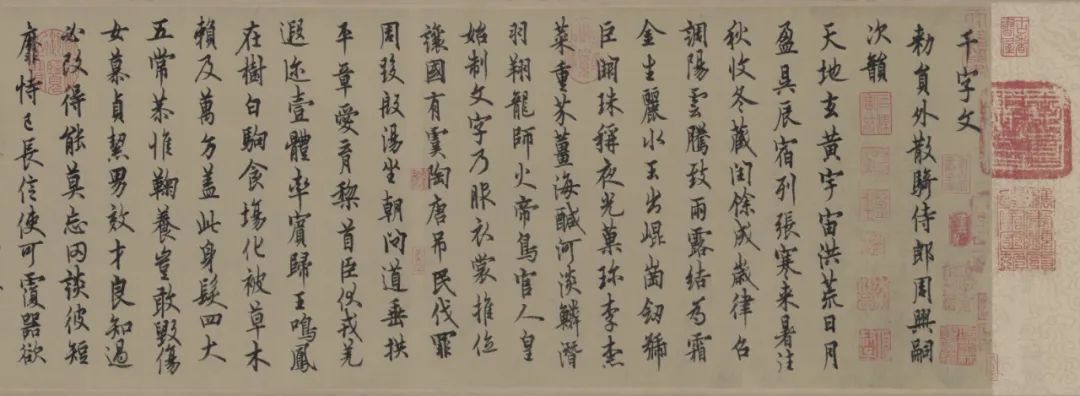 千字文
勅員外散騎侍郎周興嗣
次韻
天地玄黃宇宙洪荒日月
盈昃辰宿列張寒来暑往
秋收冬藏閏餘成歲律召
調陽雲騰致雨露結為霜
金生麗水玉出崐崗劒號
巨闕珠稱夜光菓珎李柰
菜重芥薑海醎河淡鱗潛
羽翔龍師火帝鳥官人皇
始制文字乃服衣裳推位
讓國有虞陶唐吊民伐罪
周發殷湯坐朝問道垂拱
平章愛育黎首臣伏戎羌
遐迩壹體率賓歸王鳴鳳
在樹白駒食場化被草木
賴及萬方盖此身髮四大
五常恭惟鞠養豈敢毀傷
女慕貞絜男效才良知過
必改得能莫忘罔談彼短
靡恃己長信使可覆器欲